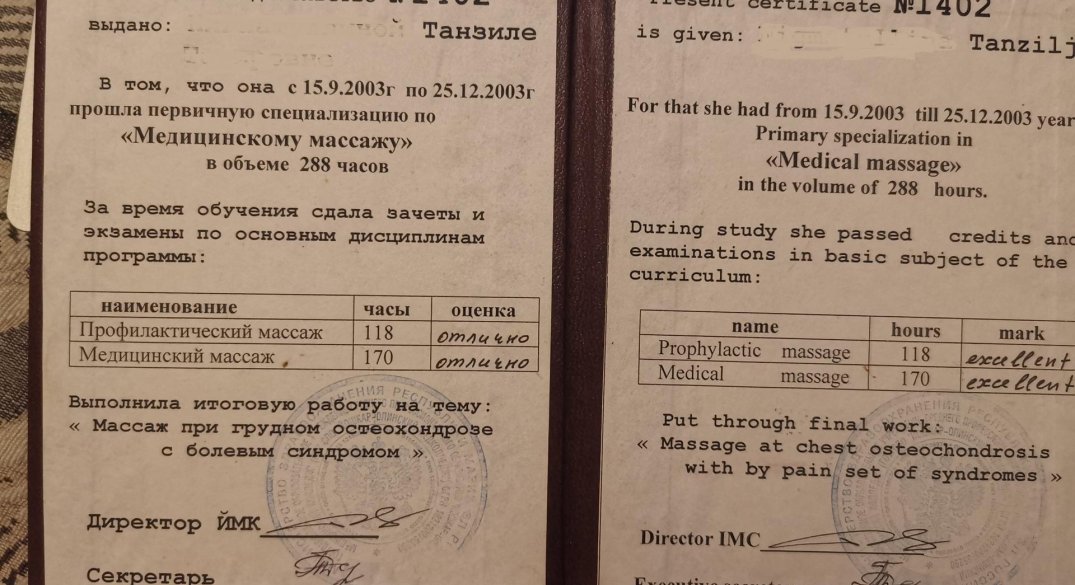 №1402
выдано: Танзиле
В том, что она с 15.9.2003г по 25.12.2003г
прошла первичную специализацию по
«Медицинскому массажу»
в объеме 288 часов
За время обучения сдала зачеты и
экзамены по основным дисциплинам
программы:
наименование часы оценка
Профилактический массаж 118 отлично
Медицинский массаж 170 отлично
Выполнила итоговую работу на тему:
« Массаж при грудном остеохондрозе
с болевым синдромом »
Директор ЙМК
Секретарь
Present certificate №1402
is given: Tanzilj
For that she had from 15.9.2003 till 25.12.2003 year
Primary specialization in
«Medical massage»
in the volume of 288 hours.
During study she passed credits and
examinations in basic subject of the
curriculum:
name hours mark
Prophylactic massage 118 excellent
Medical massage 170 excellent
Put through final work:
« Massage at chest osteochondrosis
with by pain set of syndromes »
Director IMC